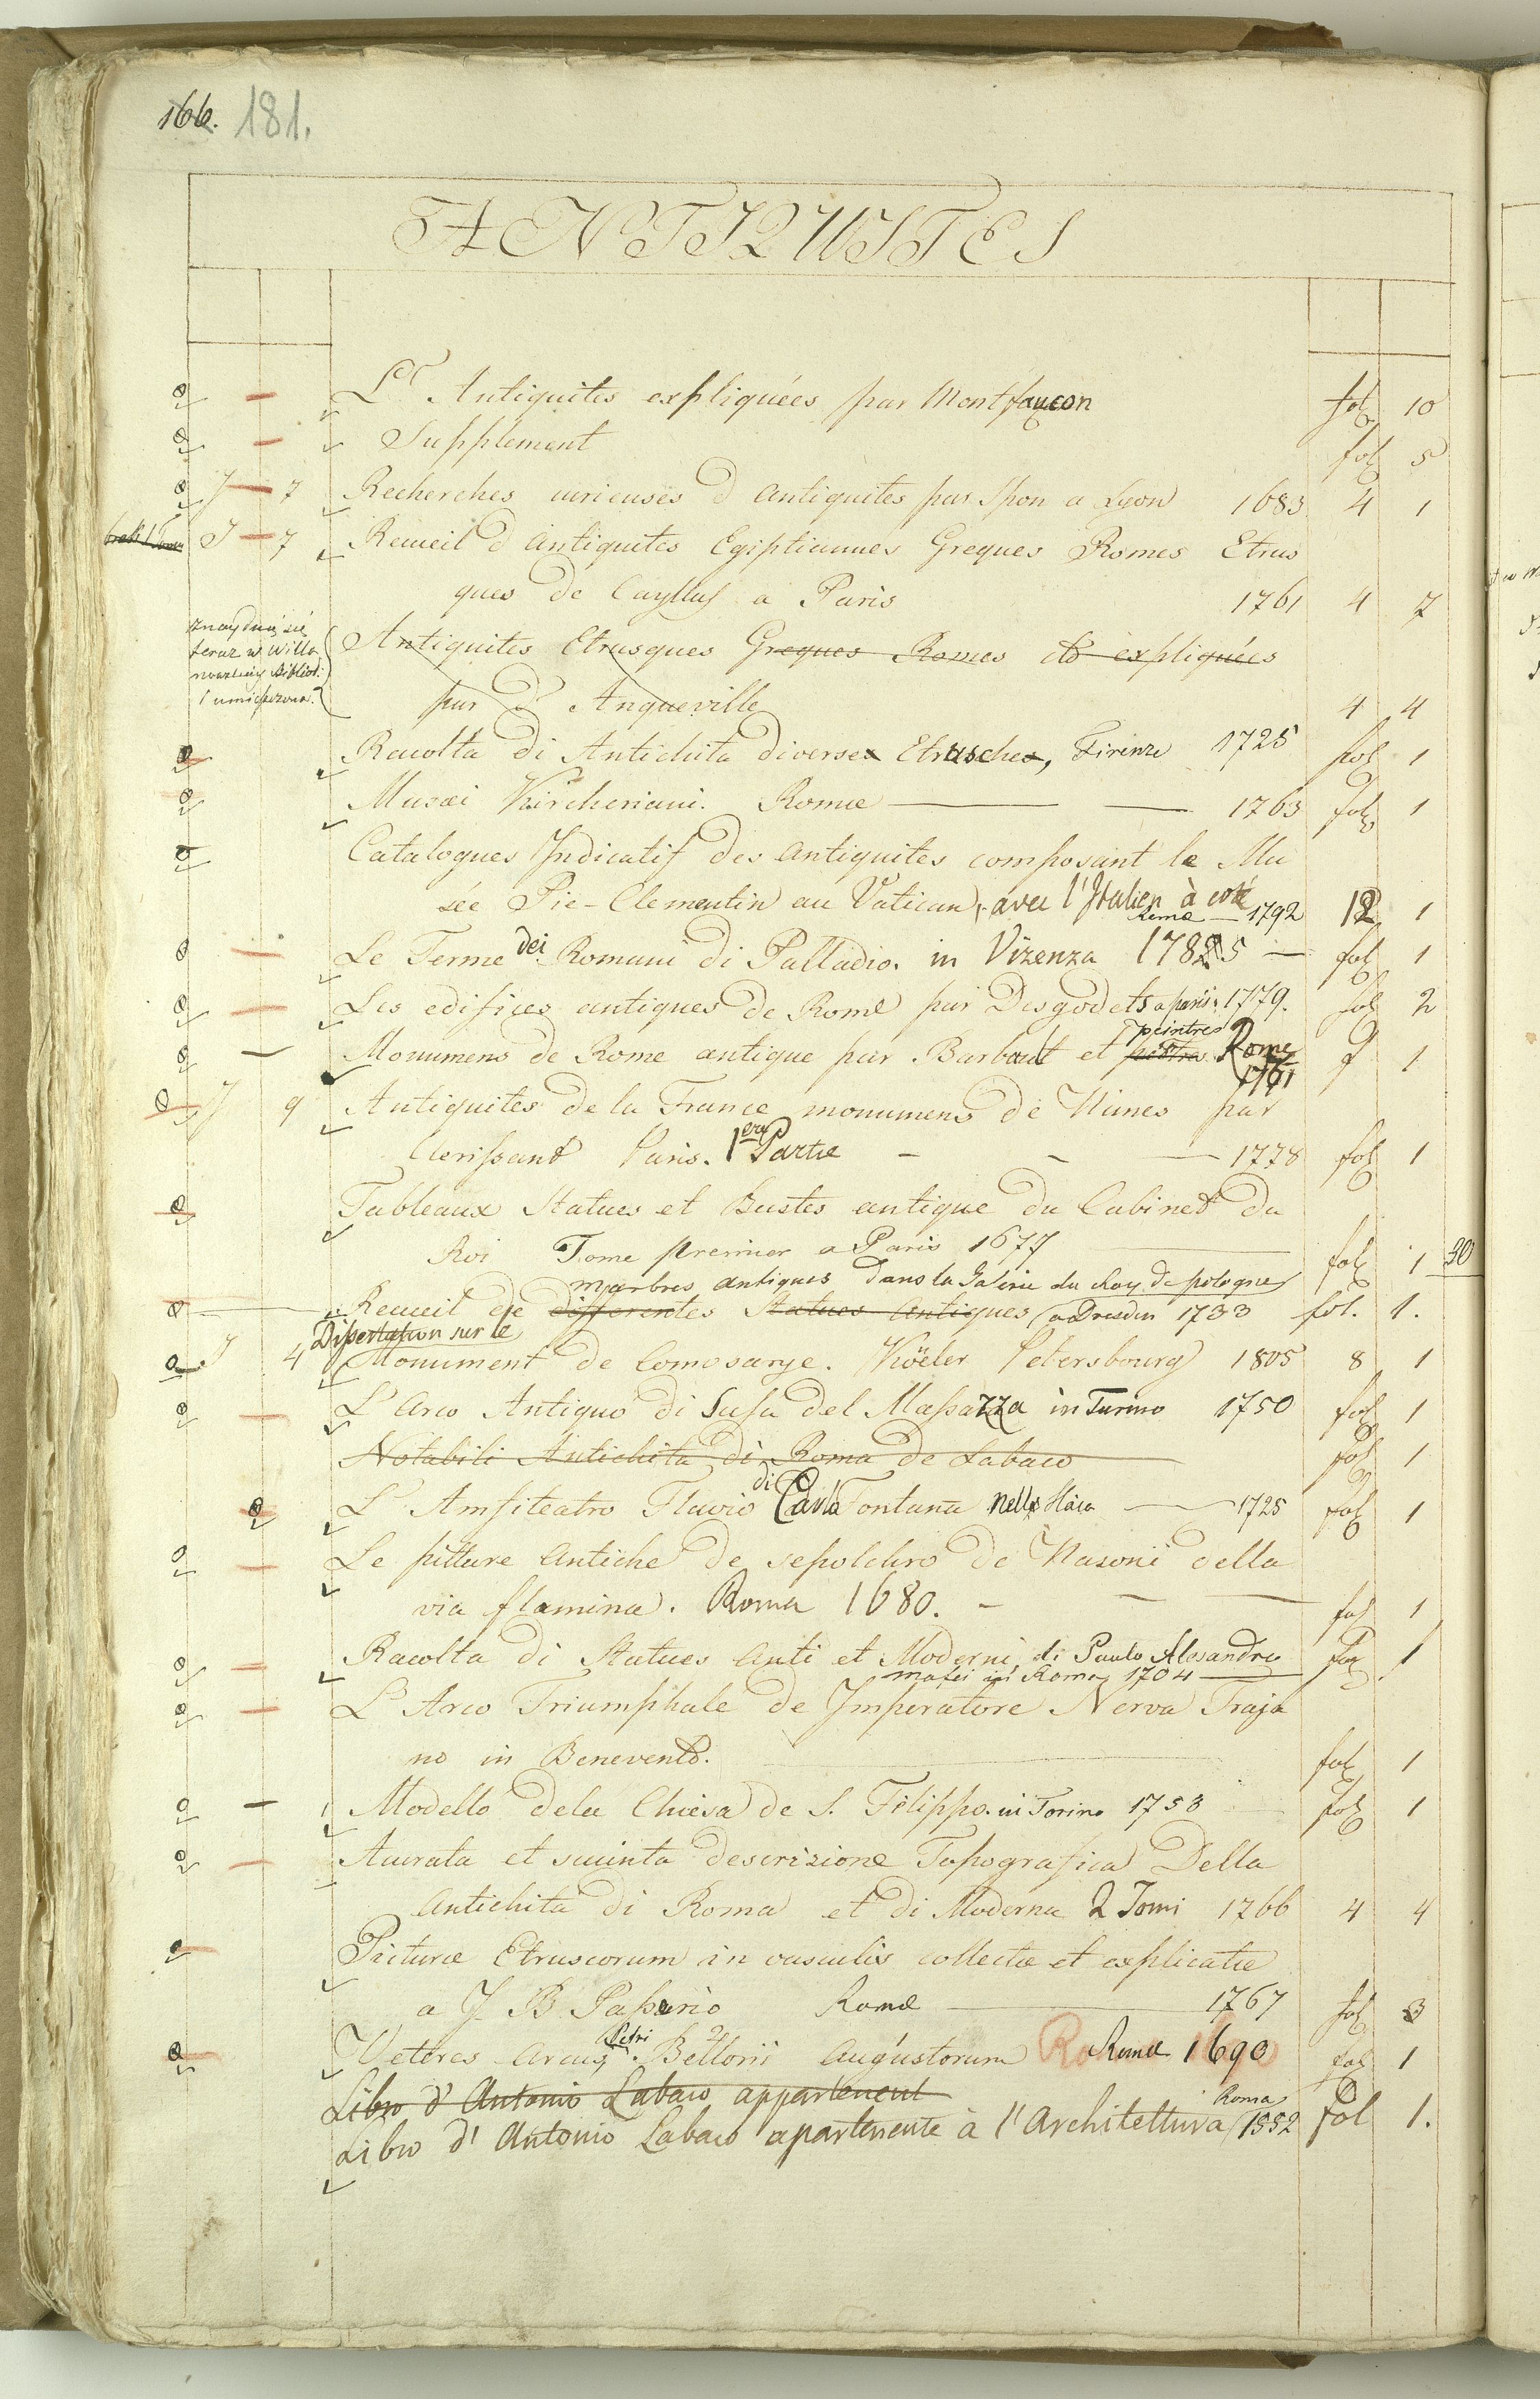 166. 181.
ANTIQUITES
Les Antiquites expliquées par Montfaucon fol 10
Supplement fol 5
J 7 Recherches curieuses d Antiquites par Spon a Lyon 1683 4 1
J 7 Recueil d Antiquites Egiptiennes Greques Romes Etrus
ques de Cayllus a Paris 1761 4 7
znayduią się
teraz w Willa
nowskiey Bibliot:
Antiquites Etrusques Greques Romes etc expliquées
par d' Anqueville 4 4
Racolta di Antichita diverse Etrusche, Firenze 1725 fol 1
Musæi Kircheriani. Romæ 1763 fol 1
Catalogues Indicatif des Antiquites composant le Mu
sée Pie-Clementin au Vatican, avec l'Italien à coté
Rome 1792 12 1
Le Terme dei Romani di Palladio. in Vizenza 1785 fol 1
Les edifices antiques de Rome par Desgodets a paris. 1779. fol 2
peintres
Monumens de Rome antique par Barbault et Rome f 1
1761
J 9 Antiquites de la France monumens de Nimes par
Clerissant Paris. 1ere Partie 1778 fol 1
Tableaux Statues et Bustes antique du Cabinet du
Roi Tome premier a Paris 1677 fol 1 30
marbres antiques dans la Galerie du Roy de pologne
Recueil de differentes Statues Antiques a Dresden 1733 fol. 1.
Dissertation sur le
J 4 Monument de Comosarye. Köeler Petersbourg 1805 8 1
L'Arco Antiquo di Susa del Massazza in Turino 1750 fol 1
Notabili Antichita di Roma de Labaco fol 1
di
L'Amfiteatro Flavio Carlo Fontana nell Haia 1725 fol 1
Le pitture Antiche de sepolchro de Nasoni della
via flamina. Roma 1680. fol 1
Racolta di Statues Anti et Moderni di Paulo Alesandro fol 1
mafei in Roma 1704
L'Arco Triumphale de Imperatore Nerva Traja
no in Benevento. fol 1
Modello dela Chiesa de S. Filippo. in Torino 1758 fol 1
Acurata et sucinta descrizione Topografica Della
Antichita di Roma et di Moderna 2 Tomi 1766 4 4
Picturæ Etruscorum in vasculis collectæ et explicatæ
a J B Passerio Romæ 1767 fol 3
Petri
Veteres Arcus Bellorii Augustorum Romæ 1690 fol 1
Libro d' Antonio Labaco appartenent
Roma
Libro d' Antonio Labaco apartenente à l'Architettura 1552 fol 1.